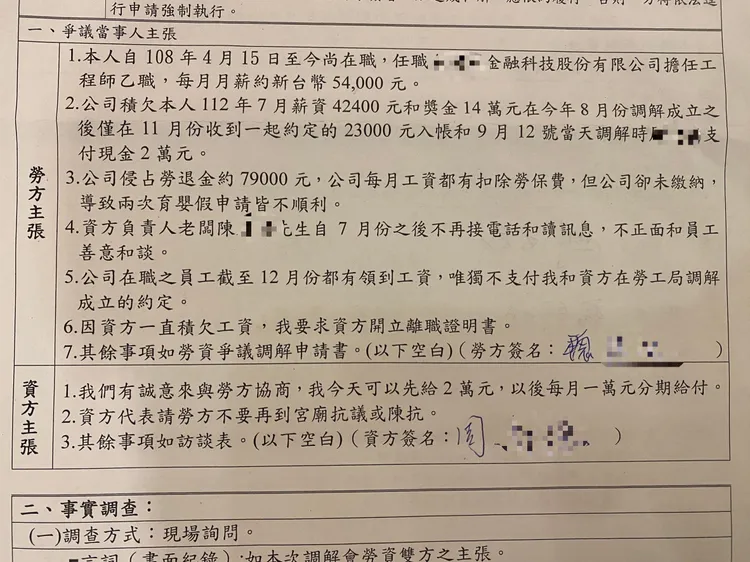 行申請強制執行。
一、爭議當事人主張
勞方主張
1.本人自 108 年 4 月 15 日至今尚在職，任職金融科技股份有限公司擔任工
程師乙職，每月月薪約新台幣 54,000 元。
2.公司積欠本人 112 年 7 月薪資 42400 元和獎金 14 萬元在今年 8 月份調解成立之
後僅在 11 月份收到一起約定的 23000 元入帳和 9 月 12 號當天調解時支
付現金 2 萬元。
3.公司侵占勞退金約 79000 元，公司每月工資都有扣除勞保費，但公司卻未繳納，
導致兩次育嬰假申請皆不順利。
4.資方負責人老闆陳生自 7 月份之後不再接電話和讀訊息，不正面和員工
善意和談。
5.公司在職之員工截至 12 月份都有領到工資，唯獨不支付我和資方在勞工局調解
成立的約定。
6.因資方一直積欠工資，我要求資方開立離職證明書。
7.其餘事項如勞資爭議調解申請書。(以下空白)（勞方簽名：）
資方主張
1.我們有誠意來與勞方協商，我今天可以先給 2 萬元，以後每月一萬元分期給付。
2.資方代表請勞方不要再到宮廟抗議或陳抗。
3.其餘事項如訪談表。(以下空白)（資方簽名：周）
二、事實調查：
(一)調查方式：現場詢問。
■言詞（書面紀錄）:如本次調解會勞資雙方之主張。